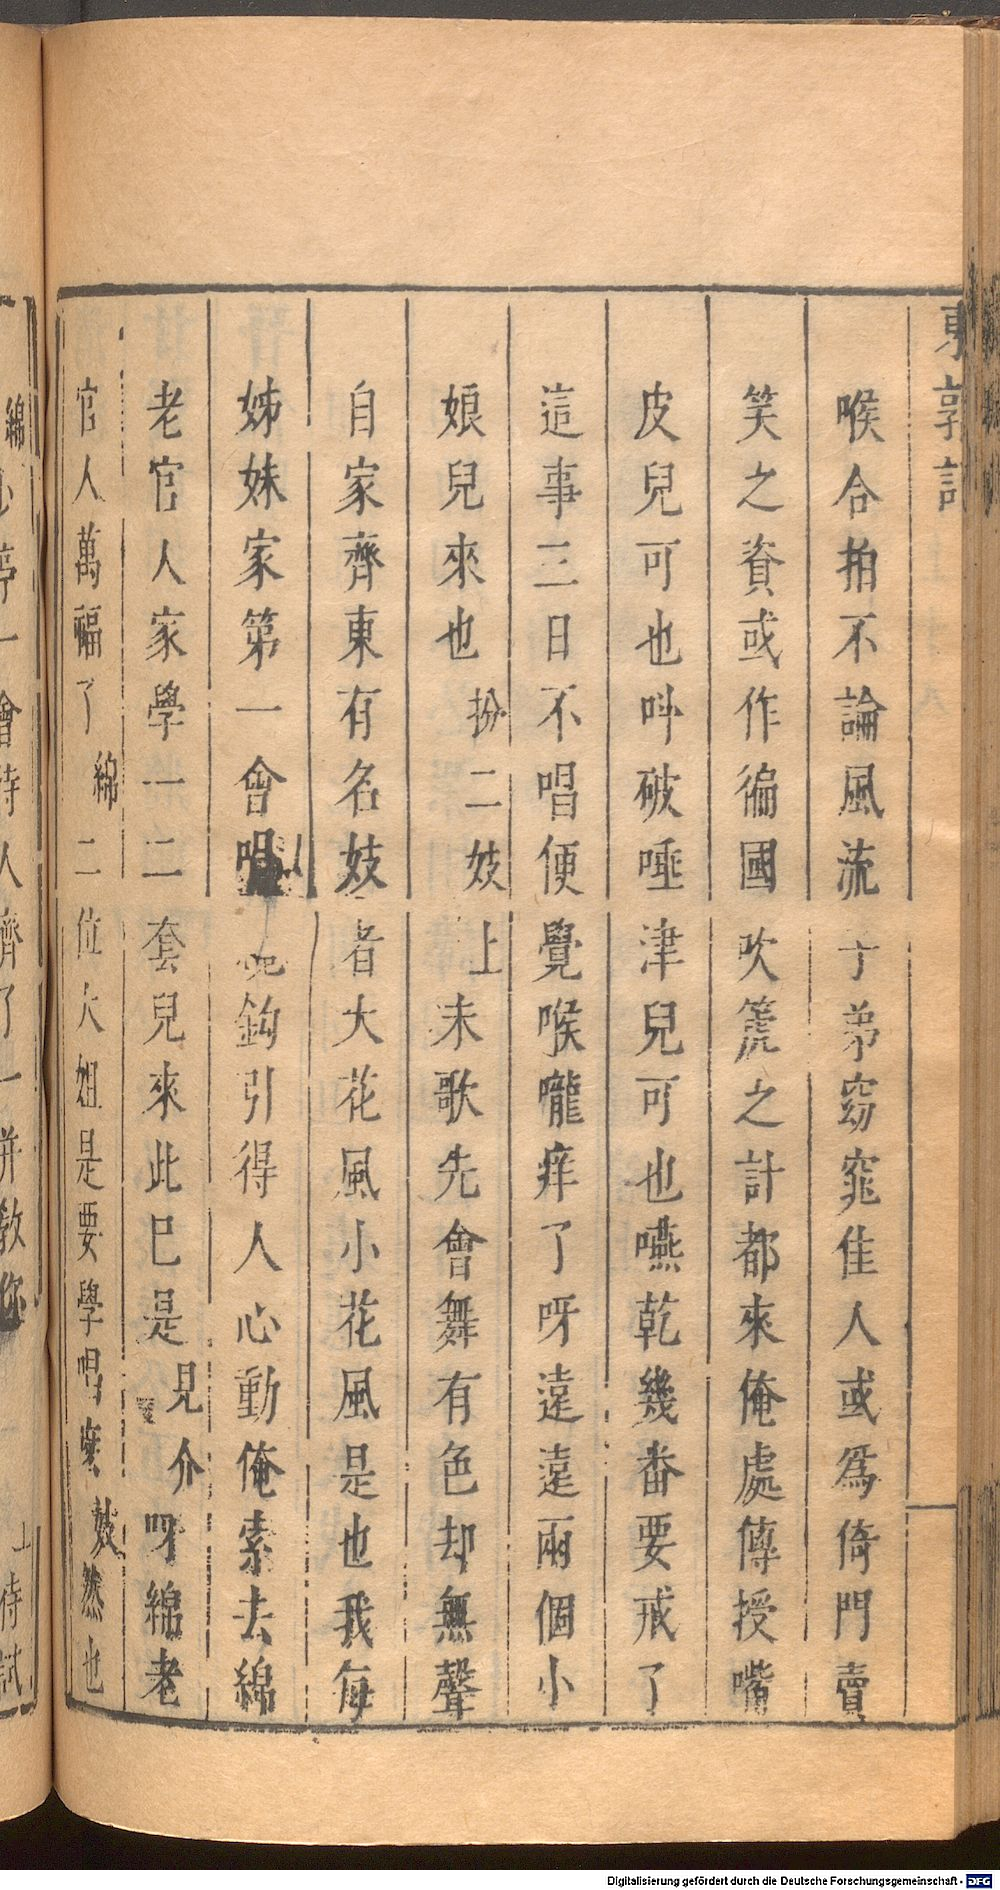 東郭記
喉合拍不論風流子弟窈窕佳人或爲倚門賣
笑之資或作徧國吹箎之計都來俺處傳授嘴
皮兒可也呌破唾津兒可也嚥乾幾番要戒了
這事三日不唱便覺喉嚨痒了呀遠遠兩個小
娘兒來也扮二妓上未歌先會舞有色却無聲
自家齊東有名妓者大花風小花風是也我每
姊妹家第一會唱鈎引得人心動俺索去綿
老官人家學一二套兒來此巳是見介呀綿老
官人萬福了綿二位大姐是要學唱麽妓然也
綿
一會待人齊了一併教您
上待試
Digitalisierung gefördert durch die Deutsche Forschungsgemeinschaft - DFG